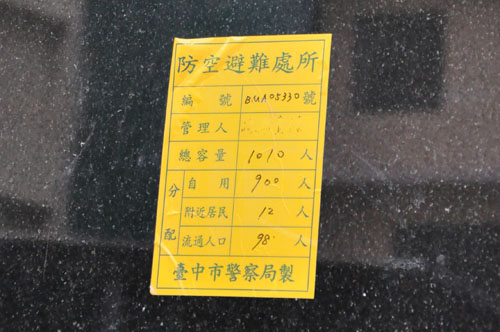 防空避難處所
編號 BMA05330號
管理人
總容量 1010人
分配 自用 900人
附近居民 12人
流通人口 98人
臺中市警察局製